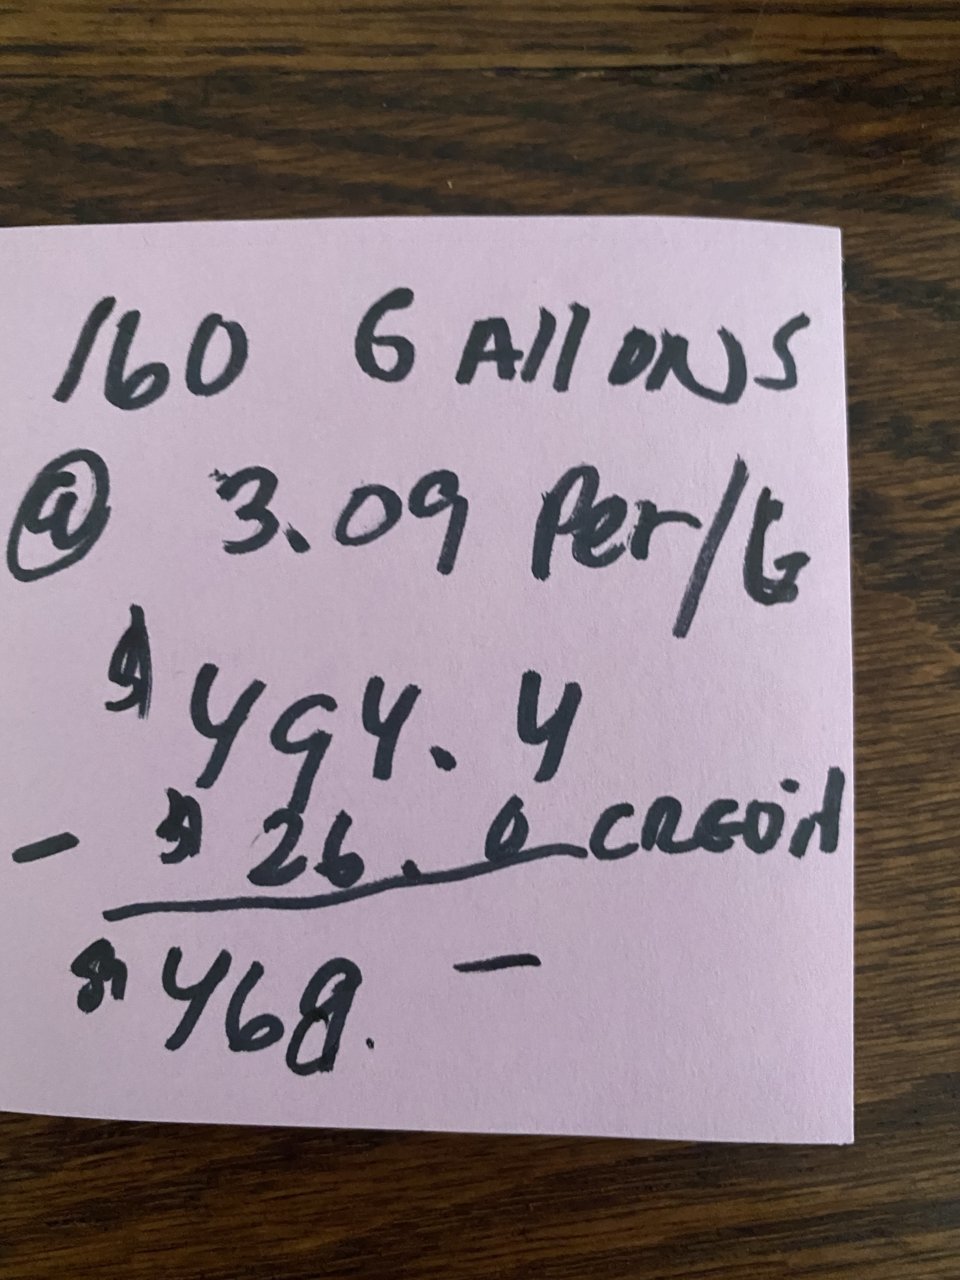 160 GAllONS
@ 3.09 Per/G
$494.4
- $26.0 CREDit
$468. -